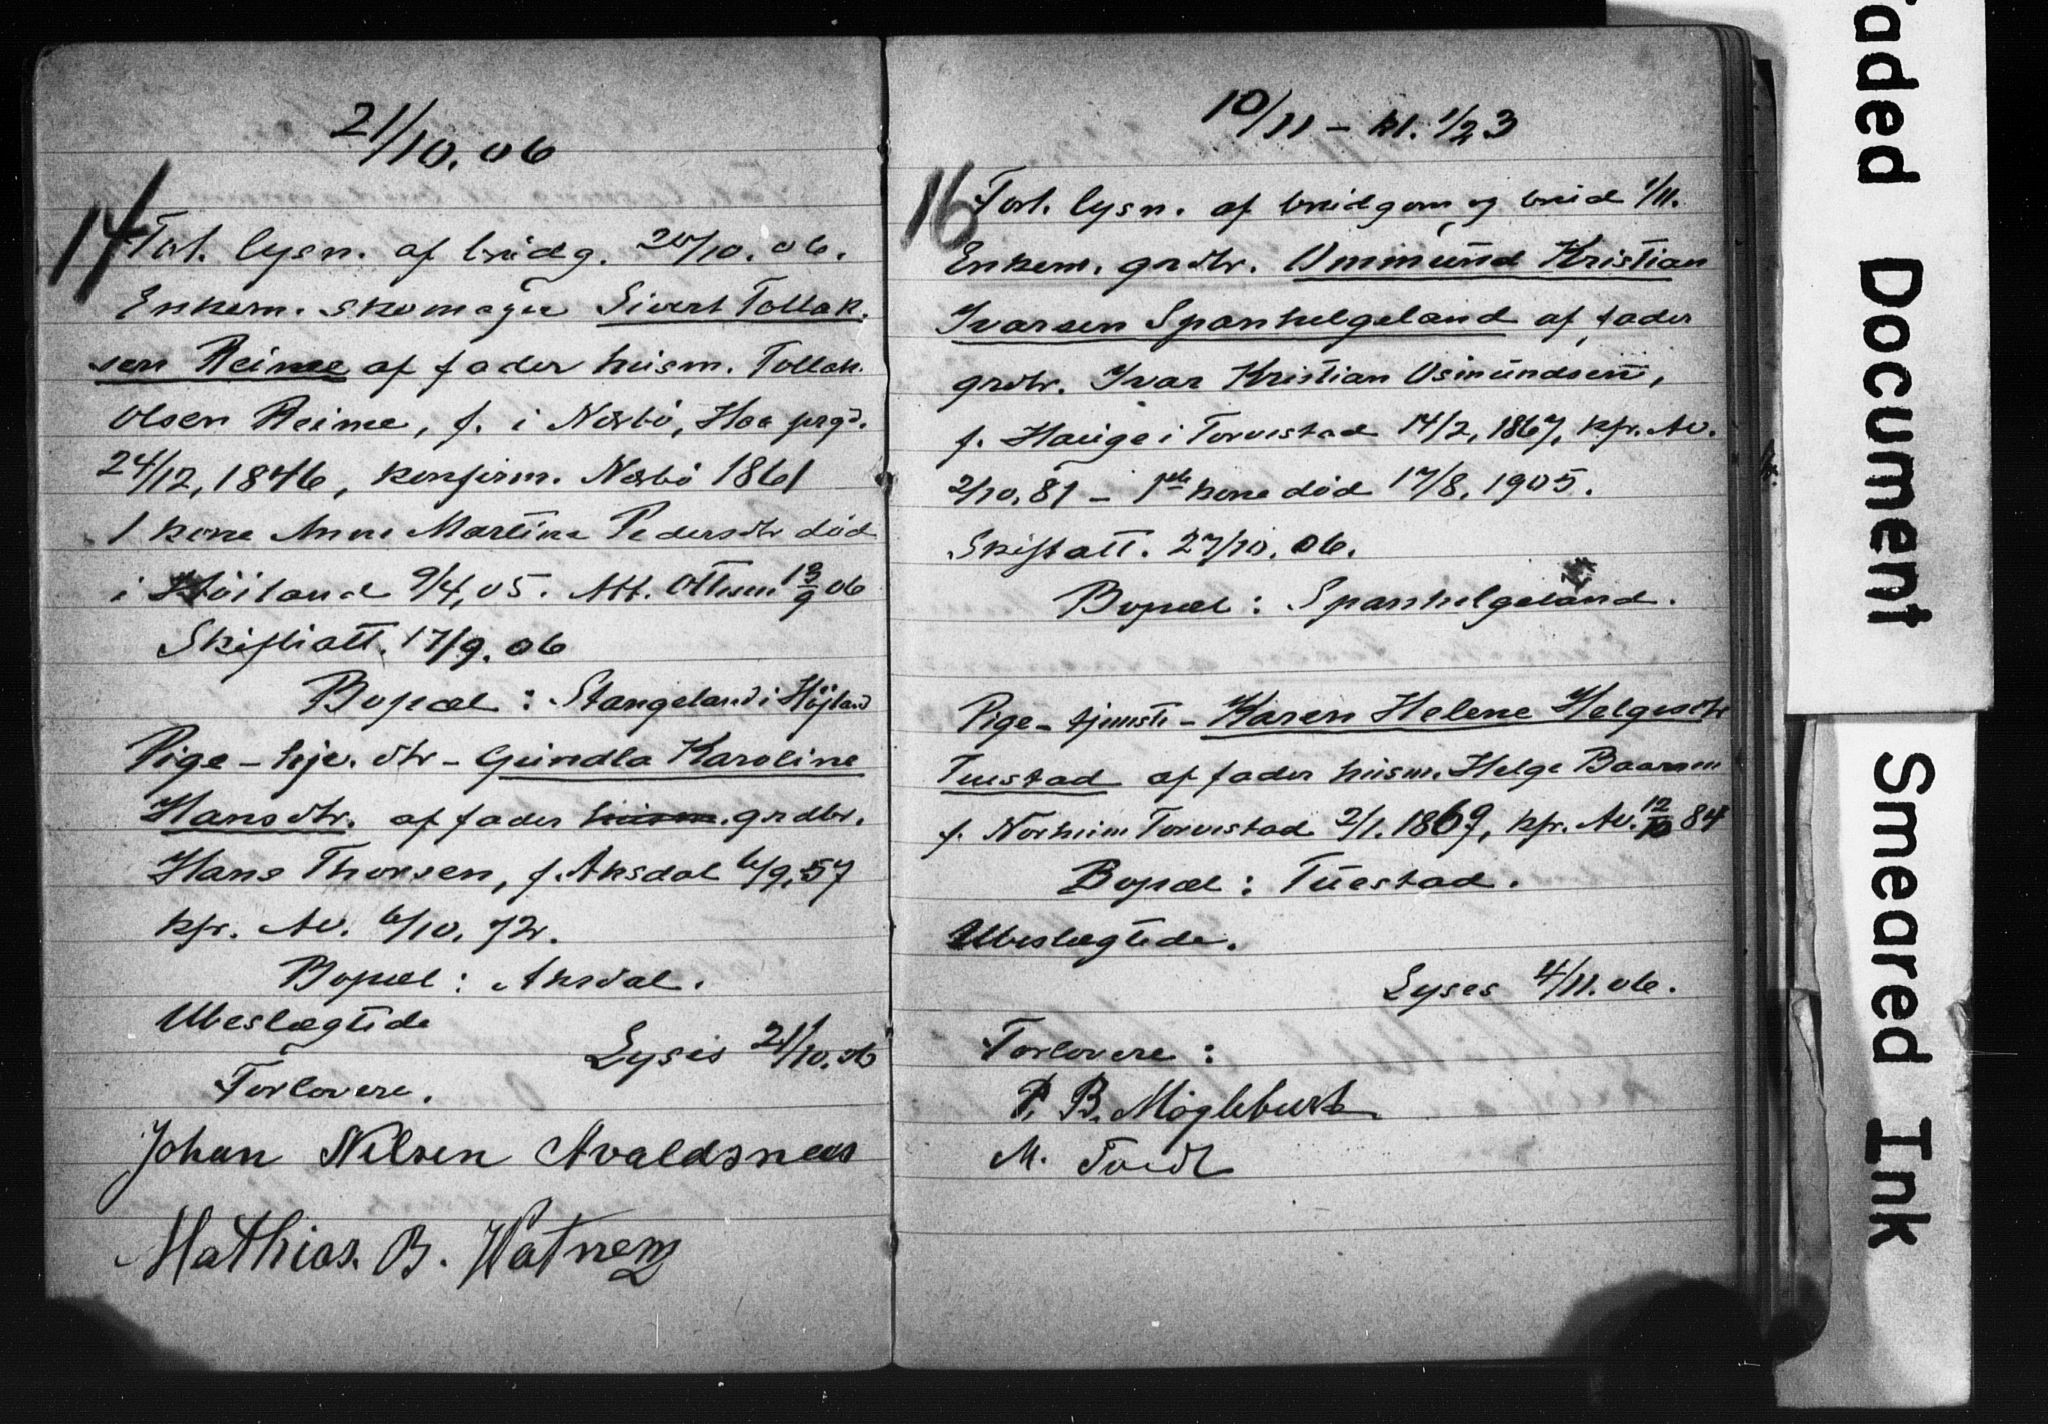 21/10.06
14 Forl. lysn. af brudg. 20/10.06.
Enkem. skomager Sivert Tollak.
sen Reime af fader husm. Tollak
Olsen Reime, f. i Nærbö, Haa prgd.
24/12, 1846, konfirm. Nærbö 1861
1 kone Anne Martine Pedersdtr död
i Höiland 9/4, 05. Att. 06
Skifteatt. 17/9. 06
Bopæl : Stangeland i Höjland
Pige - tje. dtr - Gundla Karoline
Hansdtr. af fader husm. grdbr.
Hans Thorsen, f. Aksdal 6/9, 57
kfr. Av. 6/10. 72.
Bopæl : Aksdal.
Ubeslægtede
Lyses 21/10.06
Forlovere.
Johan Nilsen Avaldsnes
Mathias. B. Vatnem
10/11 - kl. 1/2 3
16 Forl. lysn. af brudgom og brud 1/11.
Enkem. grdbr. Ommund Kristian
Ivarsen Spanhelgeland af fader
grdbr. Ivar Kristian Osmundsen,
f. Hauge i Torvestad 14/2, 1867, kfr. Av.
2/10. 81 - 1ste kone död 17/8. 1905.
Skiftatt. 27/10. 06.
Bopæl : Spanhelgeland.
Pige - tjenste - Karen Helene Helgesdtr
Tuestad af fader husm. Helge Baarsen
f. Norheim Torvestad 2/1. 1869, kfr. Av. 12/10 84
Bopæl : Tuestad.
Ubeslægtede.
Lyses 4/11. 06.
Forlovere :
P. B. Mögleburst
M.
Faded Document
Smeared Ink